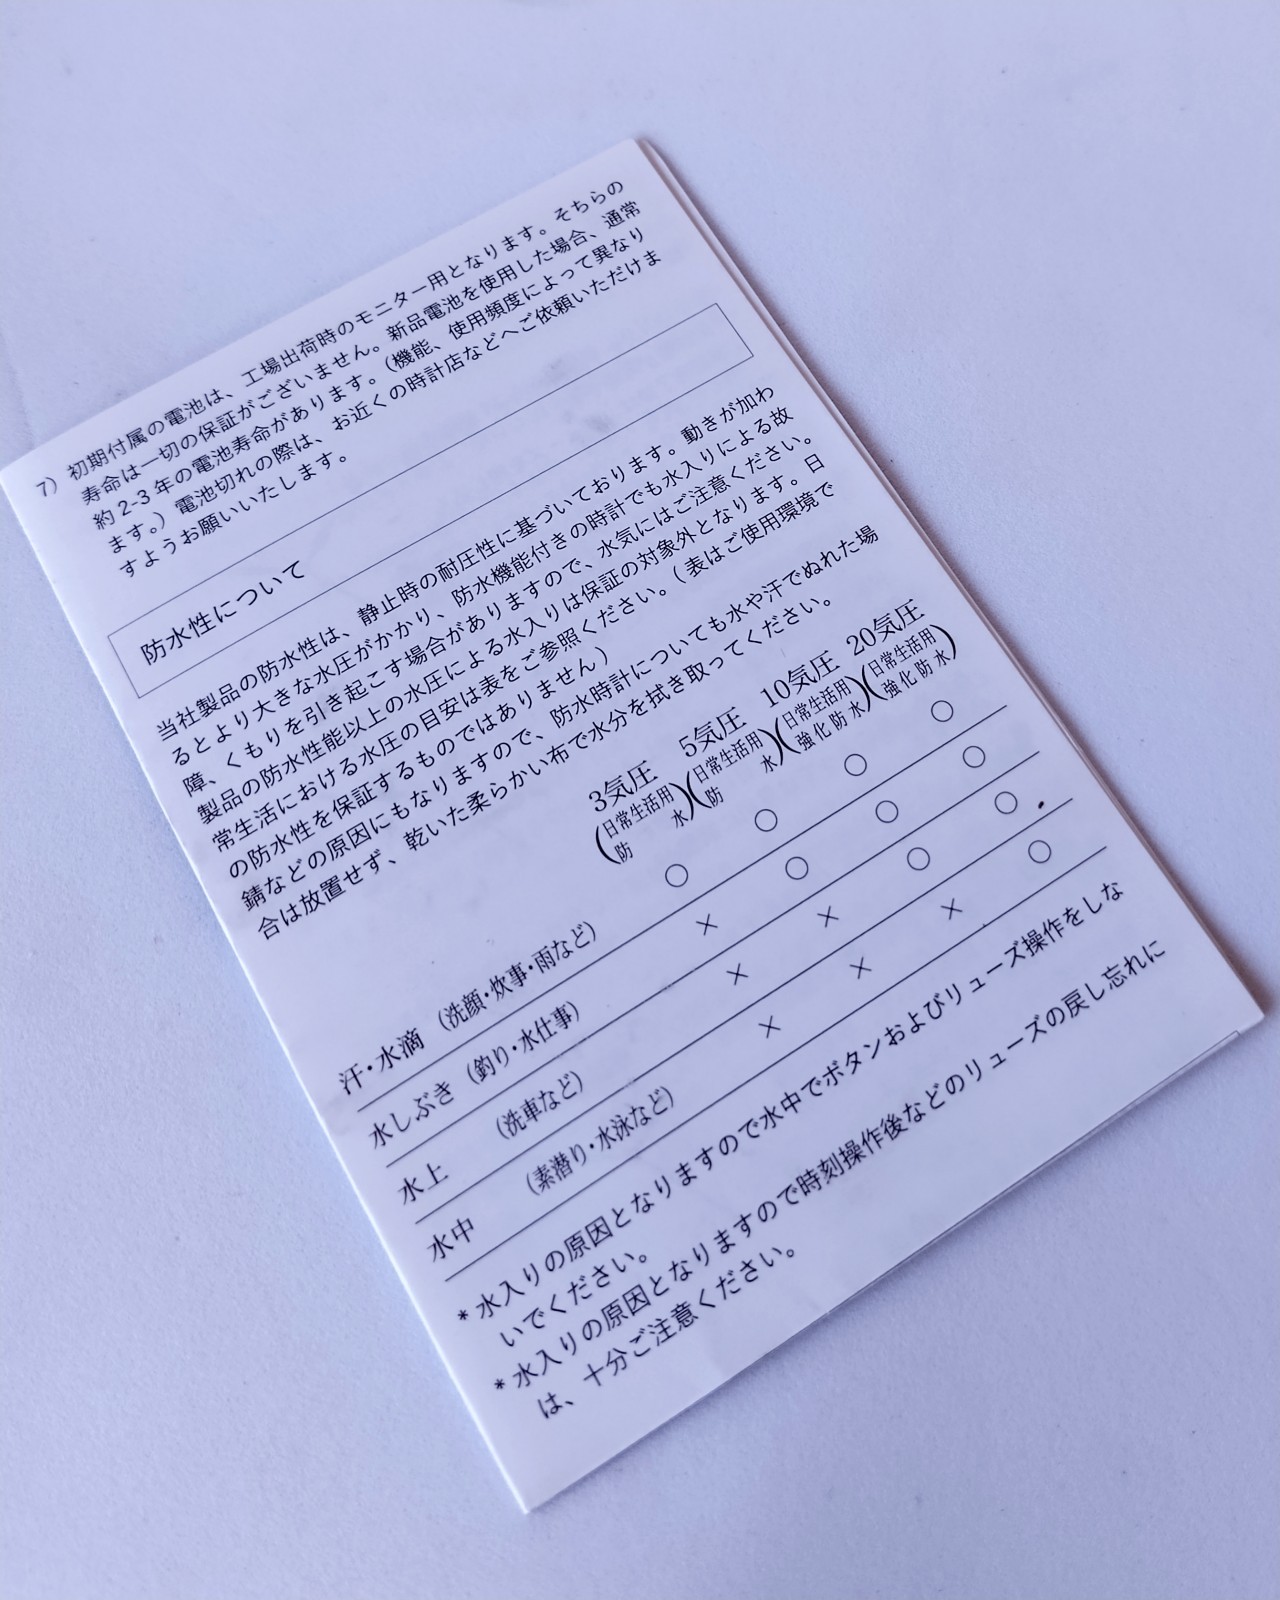 7）初期付属の電池は、工場出荷時のモニター用となります。そちらの
寿命は一切の保証がございません。新品電池を使用した場合、通常
約2-3年の電池寿命があります。（機能、使用頻度によって異なり
ます。）電池切れの際は、お近くの時計店などへご依頼いただけま
すようお願いいたします。
防水性について
当社製品の防水性は、静止時の耐圧性に基づいております。動きが加わ
るとより大きな水圧がかかり、防水機能付きの時計でも水入りによる故
障、くもりを引き起こす場合がありますので、水気にはご注意ください。
製品の防水性能以上の水圧による水入りは保証の対象外となります。日
常生活における水圧の目安は表をご参照ください。（表はご使用環境で
の防水性を保証するものではありません）
錆などの原因にもなりますので、防水時計についても水や汗でぬれた場
合は放置せず、乾いた柔らかい布で水分を拭き取ってください。
3気圧 5気圧 10気圧 20気圧
（日常生活用防水）（日常生活用防水）（日常生活用強化防水）（日常生活用強化防水）
汗・水滴（洗顔・炊事・雨など） ○ ○ ○ ○
水しぶき（釣り・水仕事） × ○ ○ ○
水上（洗車など） × × ○ ○
水中（素潜り・水泳など） × × × ○
*水入りの原因となりますので水中でボタンおよびリューズ操作をしな
いでください。
*水入りの原因となりますので時刻操作後などのリューズの戻し忘れに
は、十分ご注意ください。